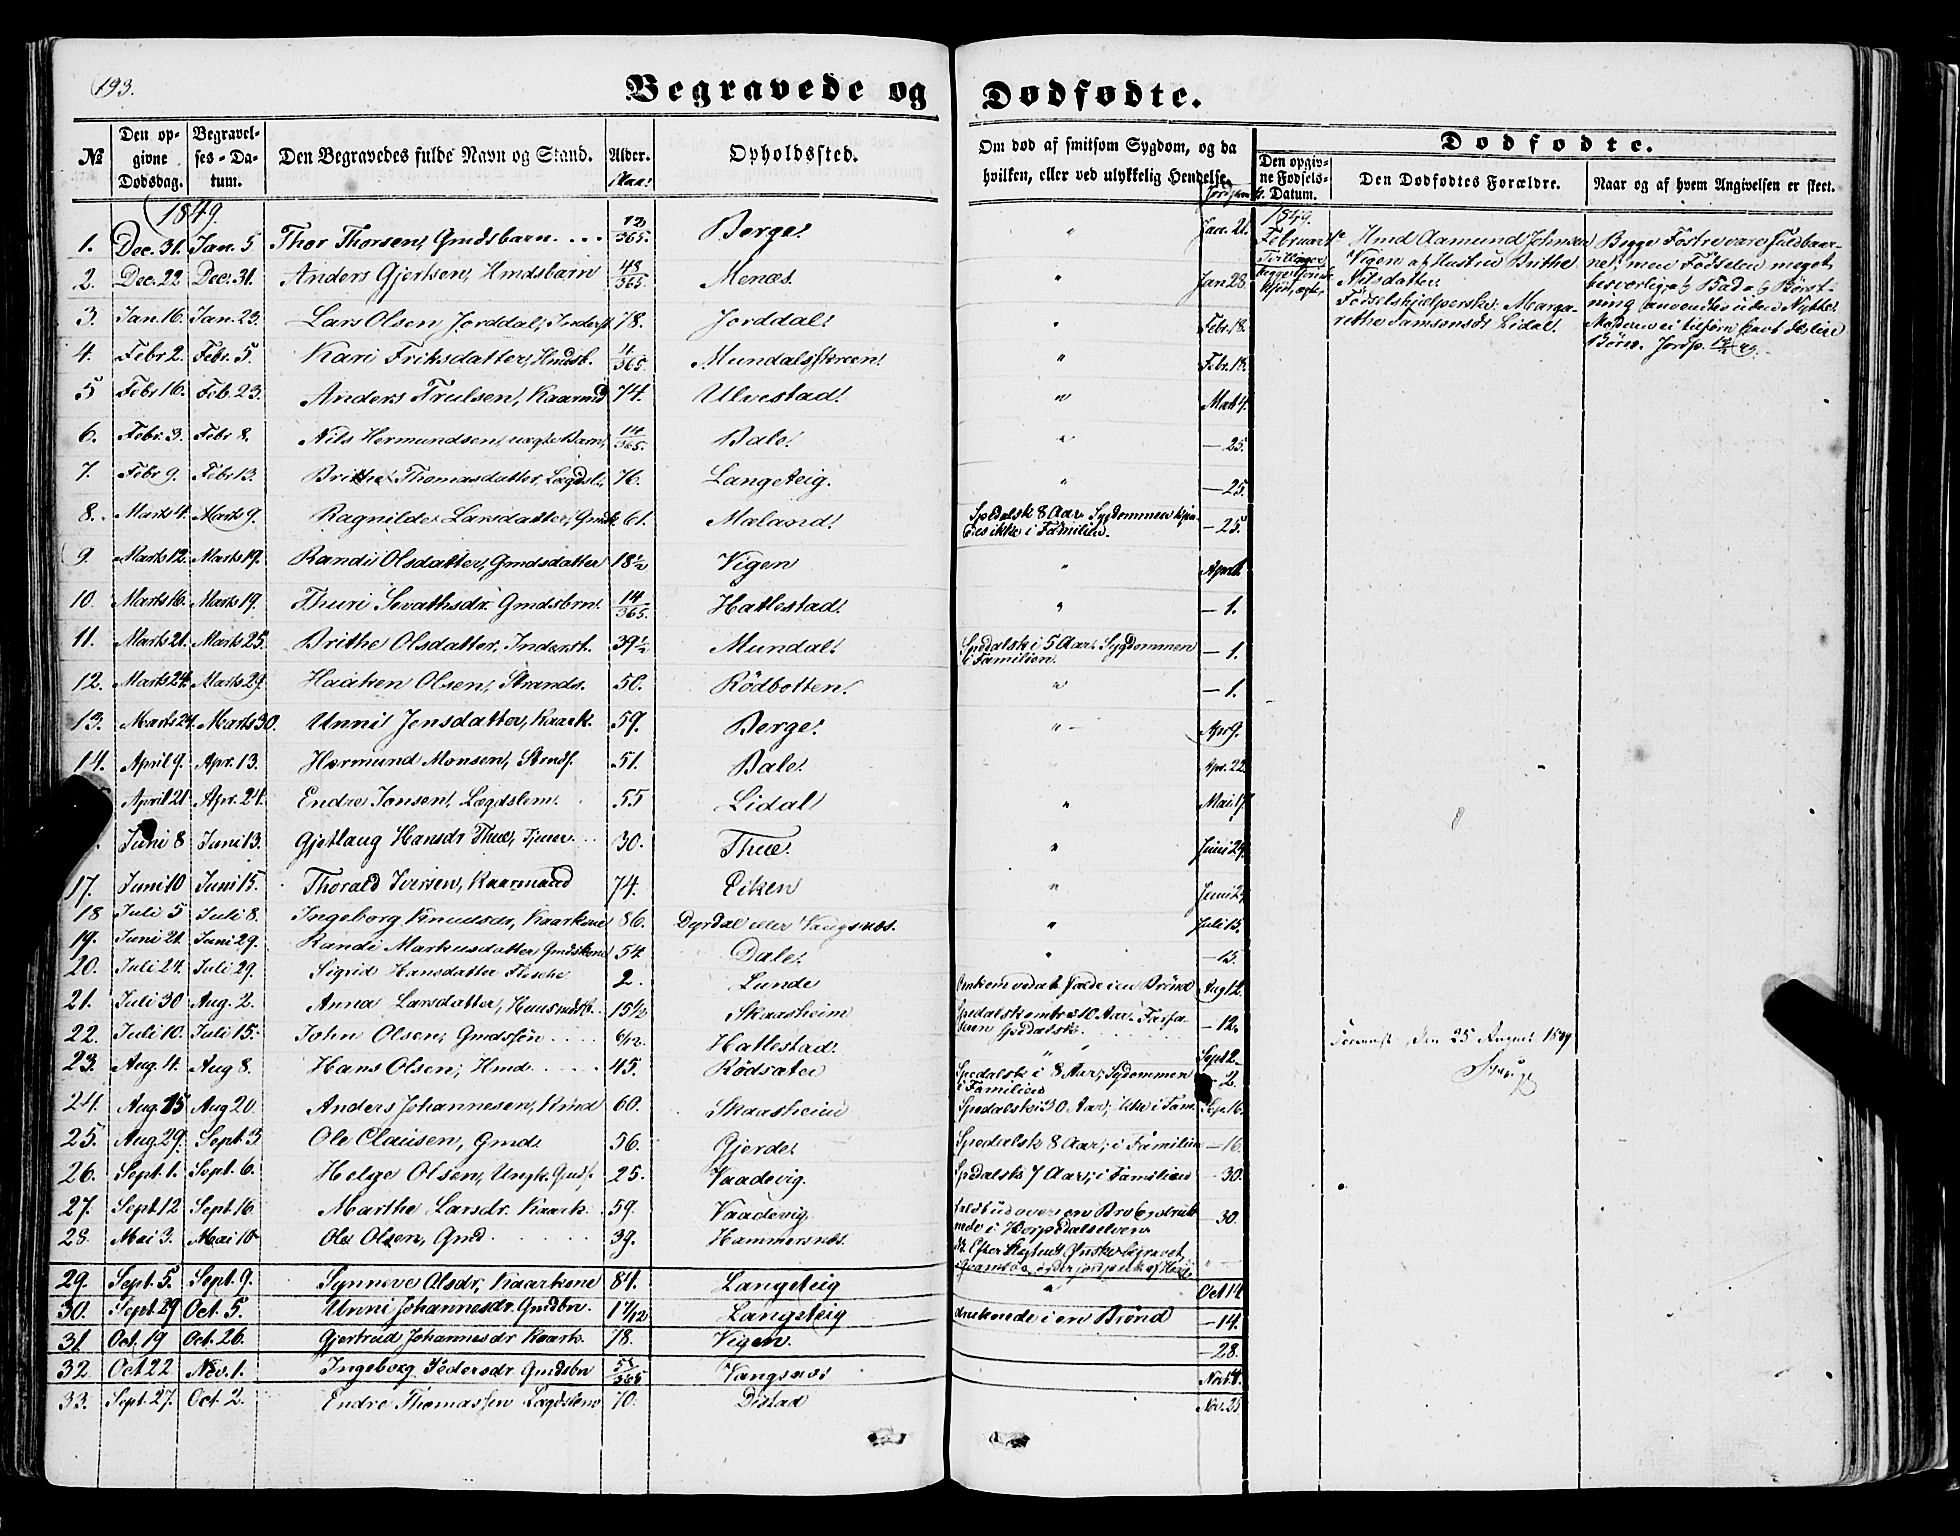 193.
Begravede og Dødfødte.
№ Den opgivne Dødsdag. Begravelses-Datum. Den Begravedes fulde Navn og Stand. Alder. Opholdssted. Om død af smitsom Sygdom, og da hvilken, eller ved ulykkelig Hendelse. Dødfødte. Den opgivne Fødsels-Datum. Den Dødfødtes Forældre. Naar og af hvem Angivelsen er skeet.
1849.
1. Dec. 31. Jan. 5 Thor Thorsen, Gmdsbarn 12/365. Berge. " Jan. 21.
2. Dec. 22 Dec. 31. Anders Gjertsen, Hmdsbarn 43/365. Menæs. " Jan 28.
3. Jan. 16. Jan. 23. Lars Olsen Jorddal, Inderst 78. Jorddal. " Febr. 18.
4. Febr 2. Febr. 5. Kari Eriksdatter, Hmdsb. 4/365. Mundalsskreen. " Febr. 18.
5 Febr 16. Feb. 23. Anders Trulsen, Kaarmd 74. Ulvestad. " Mart 4.
6. Febr. 3. Febr 8. Nils Hermundsen, uægte Barn, 14/365. Bale. " — 25.
7. Febr 9. Febr 13. Brithe Thomasdatter, Lægdsl. 76. Langeteig. " — 25.
8. Marts 4. Marts 9. Ragnilde Larsdatter, Gmdsk 61. Maland. Spedalsk 8 Aar. Sygdommen ikke i Familien. — 25.
9. Marts 12. Marts 19. Randi Olsdatter, Gmdsdatter 18½ Vigen " Apr. 1.
10. Marts 16. Marts 19. Thuri Sevathsdr. Gmdsbrn. 14/365. Hatlestad. " — 1.
11. Marts 21. Marts 25. Brithe Olsdatter, Inderst. 39½ Mundal. Spedalsk i 5 Aar. Sygdommen i Familien. — 1.
12. Marts 24. Marts 29. Haaken Olsen, Strands. 50. Rödbotten. " — 1.
13. Marts 24. Marts 30. Unni Jensdatter, Kaark. 59. Berge. " Apr 9.
14. April 9. Apr. 13. Hermund Monsen, Strnds. 51. Bale. Apr. 22
April 21 Apr. 24. Endre Jonsen, Lægdslem. 55 Lidal " Mai 17
Juni 8 Juni 13. Gjetlaug Hansdr Thue, Tjener. 30. Thue. " Juni 24.
17. Juni 10 Juni 15. Thorald Iversen, Kaarmand 74. Eiken " Juni 24
18 Juli 5 Juli 8. Ingeborg Knudsdr, Kaarkone 86. Dyrdal eller Vangsnæs. " Juli 15.
19. Juni 21. Juni 29. Randi Markusdatter Gmdskone 54 Dale. " — 15.
20. Juli 24. Juli 29. Sigrid Hansdatter Flesche 2. Lunde Omkom ved at falde i en Brönd Aug 12.
21. Juli 30 Aug. 2. Anna Larsdatter, Huusmdsk. 15½ Skaasheim Spedalsk omtr. 10 Aar. Farfaderen Spedalsk. — 12.
22. Juli 10. Juli 15. John Olsen, Gmdssön 6/12. Hatlestad. " " Sept 2
23. Aug. 4. Aug 8. Hans Olsen, Hmd 45. Rödsæter Spedalsk i 8 Aar, Sydommen i Familien — 2.
24. Aug. 15 Aug 20. Anders Johannesen, Kmd 60. Skaasheim Spedalsk i 30 Aar, ikke i Fam. Sep. 16.
25. Aug. 29. Sept. 3 Ole Clausen, Gmd. 56. Gjerde. Spedalsk 8 Aar, i Familien — 16.
26. Sept. 1. Sept. 6. Helge Olsen, Ungk. Gmds. 25. Vaadevig. Spedalsk 7 Aar, i Familien — 30.
27. Sept. 12 Sept. 16 Marthe Larsdr. Kaark. 59. Vaadevig. faldt ud over en Bro & druknede i Hopedalselven 30.
28. Mai 3. Mai 10. Ole Olsen, Gmd. 39. Hammersnæs. NB. Efter Slægtens Ønske begravet
29. Sept. 5. Sept. 9. Synneve Olsdr, Kaarkone 84. Langeteig " Oct 14
30. Sept. 29 Oct. 5. Unni Johannesdr. Gmdbrn. 1 7/12 Langeteig druknede i en Brönd — 14.
31. Oct. 19 Oct. 26. Gjertrud Johannesdr Kaark. 78. Vigen. — 28.
32 Oct 22 Nov. 1. Ingeborg Pedersdr. Gmdsbrn 51/365 Vangsnæs Nov. 4.
33. Sept. 27. Oct. 2. Endre Thomassen Lægdslem 70. Distad Nov. 25
1849.
Februar
Tvillinger
Hmd Aamund Johnsen
Vigen og Hustru Brithe
Nilsdatter.
Födselshjelperske: Margarethe Samsonsdr Lidal.
Begge Fostre vare fuldbaarne, men Födselen meget besverlig, og Bad og Börstning anvendtes uden Nytte.
Moderen ei tilforn havt dödfödte Börn. Jordp.
Forevist, den 25 August 1849